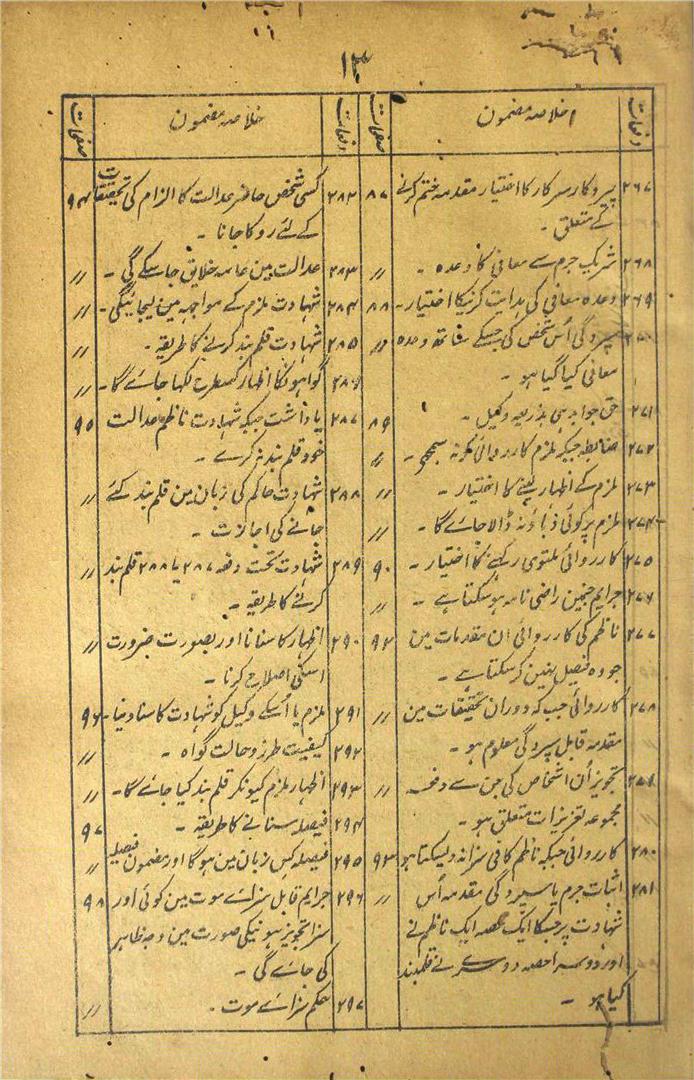 ۱۳
دفعات خلاصہ مضمون صفحات
۲۶۷ پیروکار سرکار کا اختیار مقدمہ ختم کرنے ۸۷
کے متعلق ۔
۲۶۸ شریک جرم سے معافی کا وعدہ ۔ 〃
۲۶۹ وعدہ معافی کی ہدایت کرنیکا اختیار ۔ ۸۸
۲۷۰ سپردگی اُس شخص کی جسکے ساتھ وعدہ 〃
معافی کیا گیا ہو ۔
۲۷۱ حق جوابدہی بذریعہ وکیل ۔ ۸۹
۲۷۲ ضابطہ جبکہ ملزم کارروائی کو نہ سمجھے ۔ 〃
۲۷۳ ملزم کے اظہار لینے کا اختیار ۔ 〃
۲۷۴ ملزم پر کوئی دباؤ نہ ڈالا جاے گا ۔ 〃
۲۷۵ کارروائی ملتوی رکہنے کا اختیار ۔ ۹۰
۲۷۶ جرایم جنمین راضی نامہ ہو سکتا ہے ۔ 〃
۲۷۷ ناظم کی کارروائی ان مقدمات مین ۹۲
جو وہ فیصل نہین کر سکتا ہے ۔
۲۷۸ کارروائی جب کہ دوران تحقیقات مین 〃
مقدمہ قابل سپردگی معلوم ہو ۔
۲۷۹ تجویز اُن اشخاص کی جن سے دفعہ 〃
مجموعہ تعزیرات متعلق ہو ۔
۲۸۰ کارروائی جبکہ ناظم کافی سزا نہ دیسکتا ہو ۹۳
۲۸۱ اثبات جرم یا سپردگی مقدمہ اُس 〃
شہادت پر جسکا ایک حصہ ایک ناظم نے
اور دوسرا حصہ دوسرے نے قلمبند
کیا ہو ۔
دفعات خلاصہ مضمون صفحات
۲۸۲ کسی شخص حاضر عدالت کا الزام کی تحقیقات ۹۴
کے لئے روکا جانا ۔
۲۸۳ عدالت مین عامہ خلایق جا سکے گی ۔ 〃
۲۸۴ شہادت ملزم کے مواجہہ مین لیجائیگی ۔ 〃
۲۸۵ شہادت قلم بند کرنے کا طریقہ ۔ 〃
۲۸۶ گواہونکا اظہار کسطرح لکہا جاے گا ۔ 〃
۲۸۷ یادداشت جبکہ شہادت ناظم عدالت ۹۵
خود قلم بند نہ کرے ۔
۲۸۸ شہادت حاکم کی زبان مین قلم بند کئے 〃
جانے کی اجازت ۔
۲۸۹ شہادت تحت دفعہ ۲۸۷ یا ۲۸۸ قلم بند 〃
کرنے کا طریقہ ۔
۲۹۰ اظہار کا سنانا اور بصورت ضرورت 〃
اسکی اصلاح کرنا ۔
۲۹۱ ملزم یا اُسکے وکیل کو شہادت کا سنا دینا ۔ ۹۶
۲۹۲ کیفیت طرز و حالت گواہ ۔ 〃
۲۹۳ اظہار ملزم کیونکر قلم بند کیا جاے گا ۔ 〃
۲۹۴ فیصلہ سنانے کا طریقہ ۔ ۹۷
۲۹۵ فیصلہ کس زبان مین ہوگا اور مضمون فیصلہ 〃
۲۹۶ جرایم قابل سزاے موت مین کوئی اور ۹۸
سزا تجویز ہونیکی صورت مین وجہ ظاہر
کی جاے گی ۔
۲۹۷ حکم سزاے موت ۔ 〃